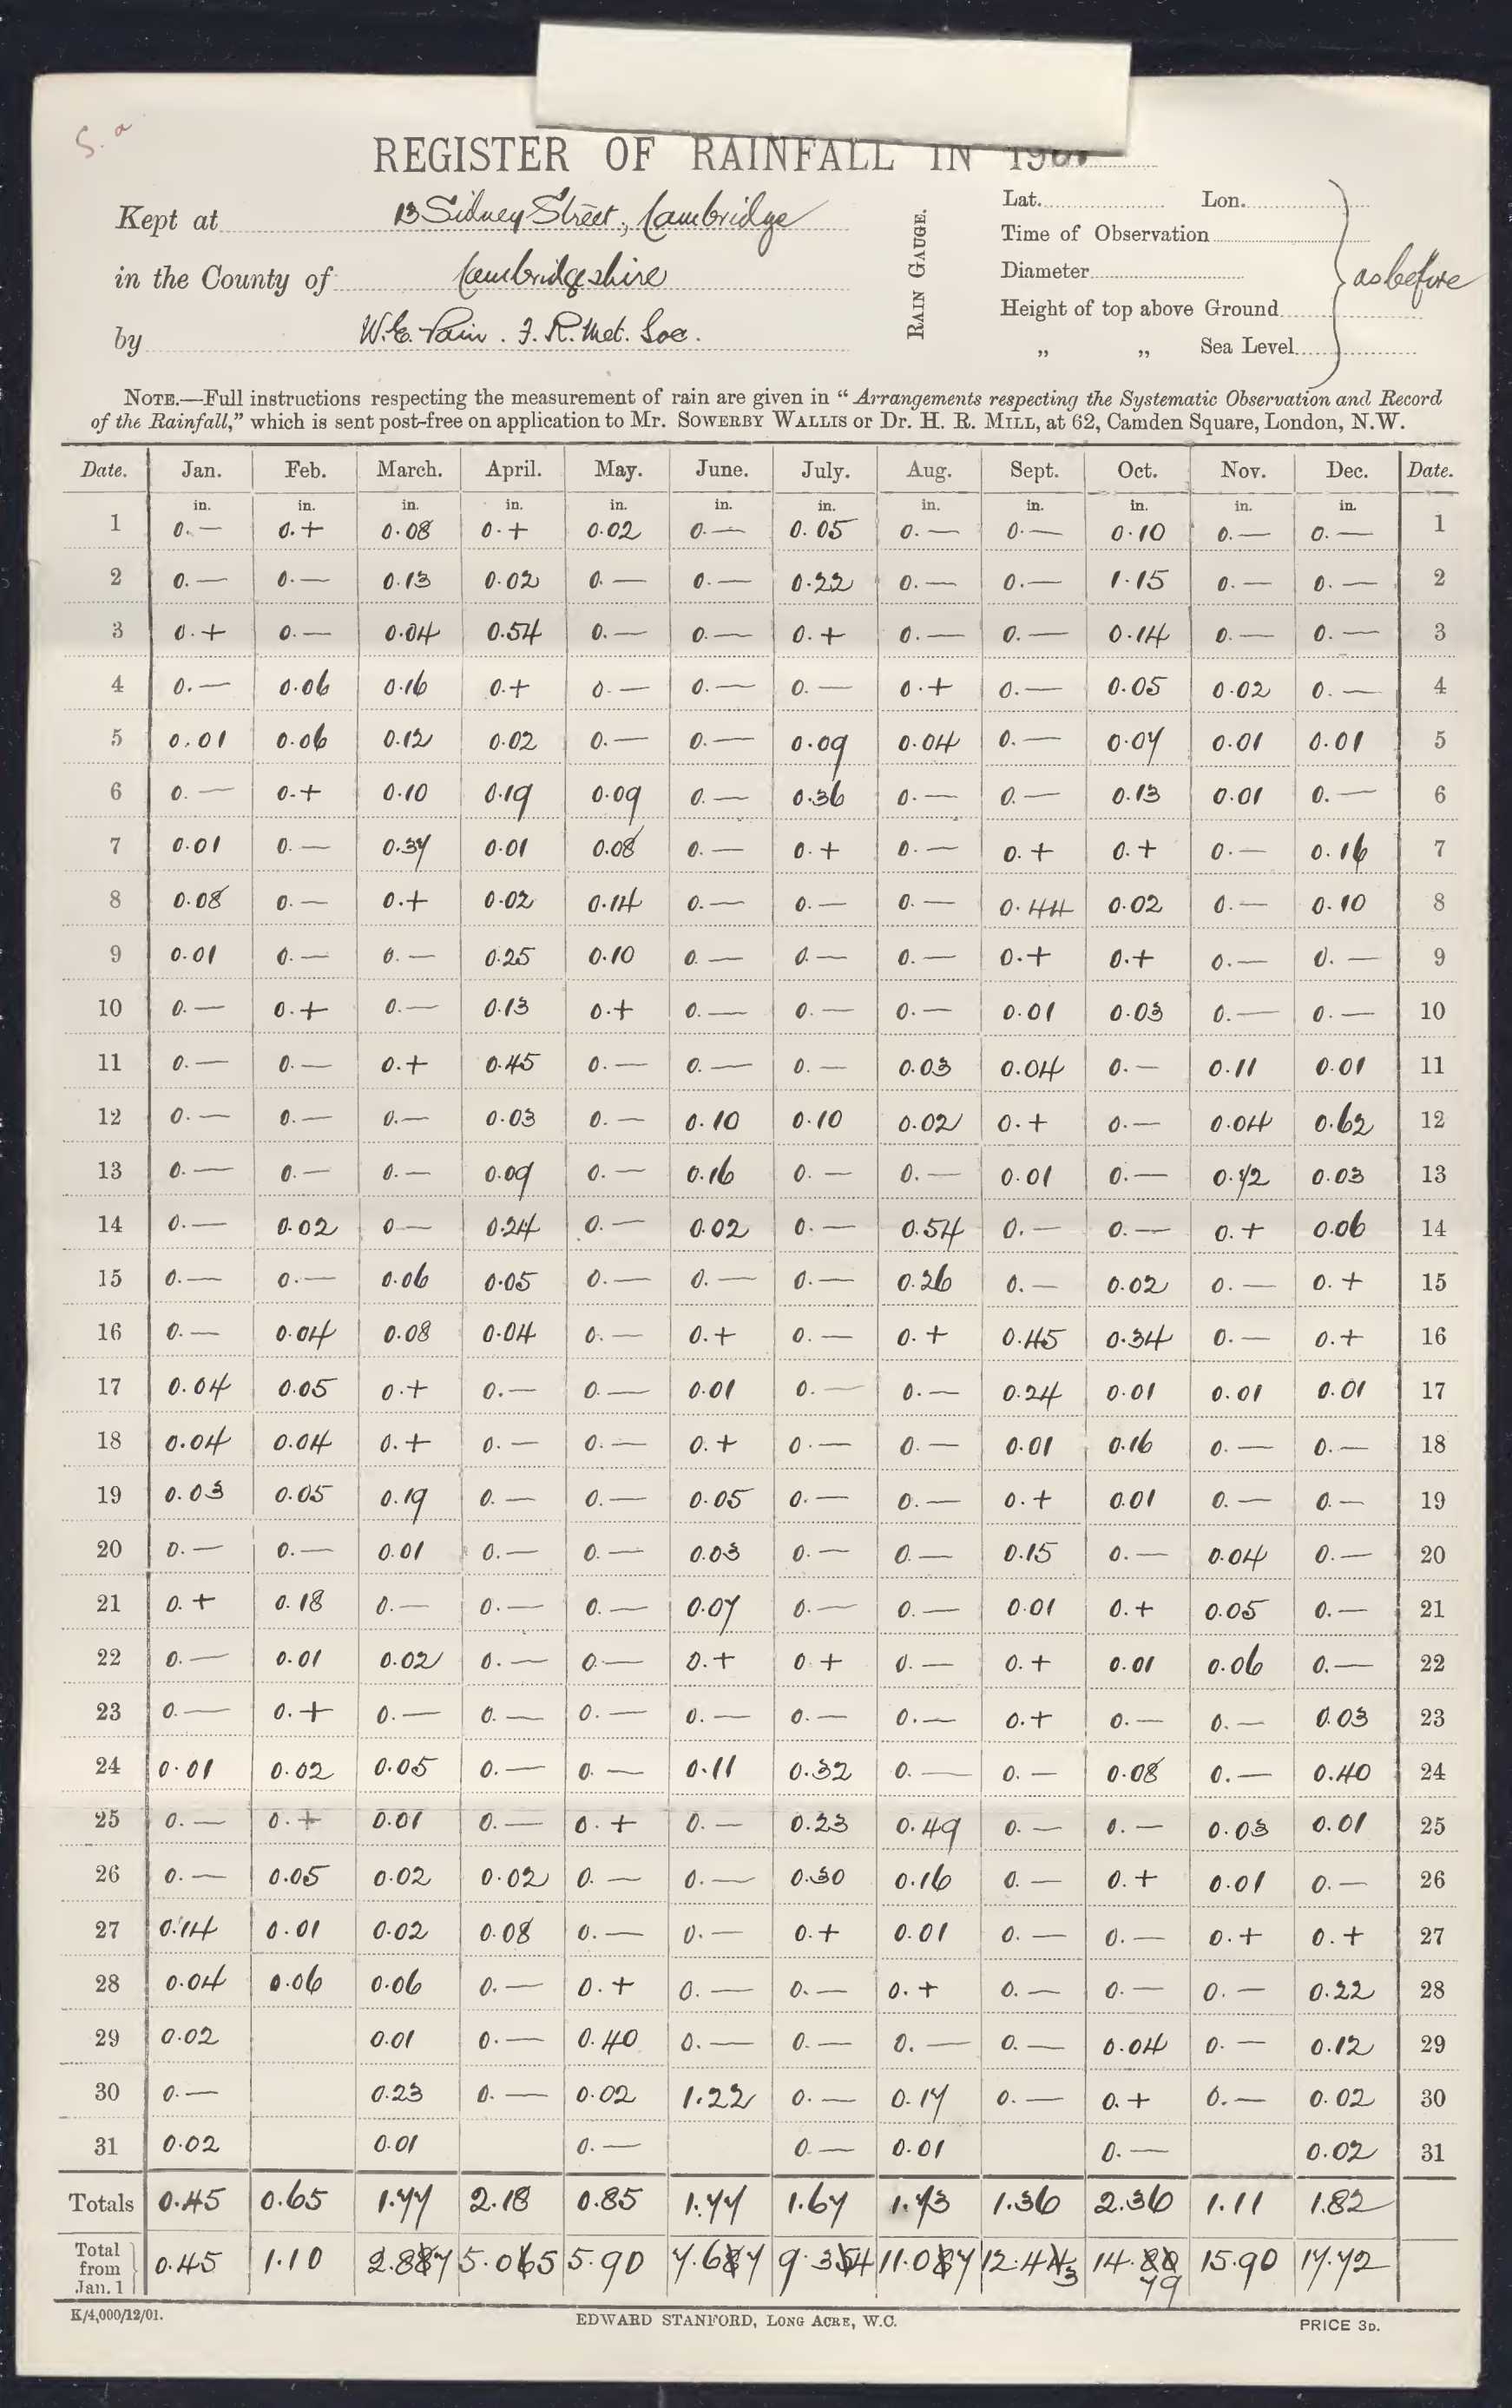 S. a
REGISTER OF RAINFALL IN 190
Kept at 13 Sidney Street, Cambridge
in the County of Cambridgeshire
by W. E. Pain. F. R. Met. Soc.
RAIN GAUGE.
Lat. Lon.
Time of Observation
Diameter
Height of top above Ground
„ „ Sea Level
as before
NOTE.—Full instructions respecting the measurement of rain are given in “ Arrangements respecting the Systematic Observation and Record
of the Rainfall,” which is sent post-free on application to Mr. SOWERBY WALLIS or Dr. H. R. MILL, at 62, Camden Square, London, N.W.
Date. Jan. Feb. March. April. May. June. July. Aug. Sept. Oct. Nov. Dec. Date.
in. in. in. in. in. in. in. in. in. in. in. in.
1 0.— 0.+ 0.08 0.+ 0.02 0.— 0.05 0.— 0.— 0.10 0.— 0.— 1
2 0.— 0.— 0.13 0.02 0.— 0.— 0.22 0.— 0.— 1.15 0.— 0.— 2
3 0.+ 0.— 0.04 0.54 0.— 0.— 0.+ 0.— 0.— 0.14 0.— 0.— 3
4 0.— 0.06 0.16 0.+ 0.— 0.— 0.— 0.+ 0.— 0.05 0.02 0.— 4
5 0.01 0.06 0.12 0.02 0.— 0.— 0.09 0.04 0.— 0.07 0.01 0.01 5
6 0.— 0.+ 0.10 0.19 0.09 0.— 0.36 0.— 0.— 0.13 0.01 0.— 6
7 0.01 0.— 0.37 0.01 0.08 0.— 0.+ 0.— 0.+ 0.+ 0.— 0.16 7
8 0.08 0.— 0.+ 0.02 0.14 0.— 0.— 0.— 0.44 0.02 0.— 0.10 8
9 0.01 0.— 0.— 0.25 0.10 0.— 0.— 0.— 0.+ 0.+ 0.— 0.— 9
10 0.— 0.+ 0.— 0.13 0.+ 0.— 0.— 0.— 0.01 0.03 0.— 0.— 10
11 0.— 0.— 0.+ 0.45 0.— 0.— 0.— 0.03 0.04 0.— 0.11 0.01 11
12 0.— 0.— 0.— 0.03 0.— 0.10 0.10 0.02 0.+ 0.— 0.04 0.62 12
13 0.— 0.— 0.— 0.09 0.— 0.16 0.— 0.— 0.01 0.— 0.72 0.03 13
14 0.— 0.02 0— 0.24 0.— 0.02 0.— 0.54 0.— 0.— 0.+ 0.06 14
15 0.— 0.— 0.06 0.05 0.— 0.— 0.— 0.26 0.— 0.02 0.— 0.+ 15
16 0.— 0.04 0.08 0.04 0.— 0.+ 0.— 0.+ 0.45 0.34 0.— 0.+ 16
17 0.04 0.05 0.+ 0.— 0.— 0.01 0.— 0.— 0.24 0.01 0.01 0.01 17
18 0.04 0.04 0.+ 0.— 0.— 0.+ 0.— 0.— 0.01 0.16 0.— 0.— 18
19 0.03 0.05 0.19 0.— 0.— 0.05 0.— 0.— 0.+ 0.01 0.— 0.— 19
20 0.— 0.— 0.01 0.— 0.— 0.03 0.— 0.— 0.15 0.— 0.04 0.— 20
21 0.+ 0.18 0.— 0.— 0.— 0.07 0.— 0.— 0.01 0.+ 0.05 0.— 21
22 0.— 0.01 0.02 0.— 0.— 0.+ 0+ 0.— 0.+ 0.01 0.06 0.— 22
23 0.— 0.+ 0.— 0.— 0.— 0.— 0.— 0.— 0.+ 0.— 0.— 0.03 23
24 0.01 0.02 0.05 0.— 0.— 0.11 0.32 0.— 0.— 0.08 0.— 0.40 24
25 0.— 0.+ 0.01 0.— 0.+ 0.— 0.23 0.49 0.— 0.— 0.03 0.01 25
26 0.— 0.05 0.02 0.02 0.— 0.— 0.30 0.16 0.— 0.+ 0.01 0.— 26
27 0.14 0.01 0.02 0.08 0.— 0.— 0.+ 0.01 0.— 0.— 0.+ 0.+ 27
28 0.04 0.06 0.06 0.— 0.+ 0.— 0.— 0.+ 0.— 0.— 0.— 0.22 28
29 0.02 0.01 0.— 0.40 0.— 0.— 0.— 0.— 0.04 0.— 0.12 29
30 0.— 0.23 0.— 0.02 1.22 0.— 0.17 0.— 0.+ 0.— 0.02 30
31 0.02 0.01 0.— 0.— 0.01 0.— 0.02 31
Totals 0.45 0.65 1.77 2.18 0.85 1.77 1.67 1.73 1.36 2.36 1.11 1.82
Total from Jan. 1 0.45 1.10 2.87 5.05 5.90 7.67 9.34 11.07 12.43 14.79 15.90 17.72
K/4,000/12/01. EDWARD STANFORD, LONG ACRE, W.C. PRICE 3D.